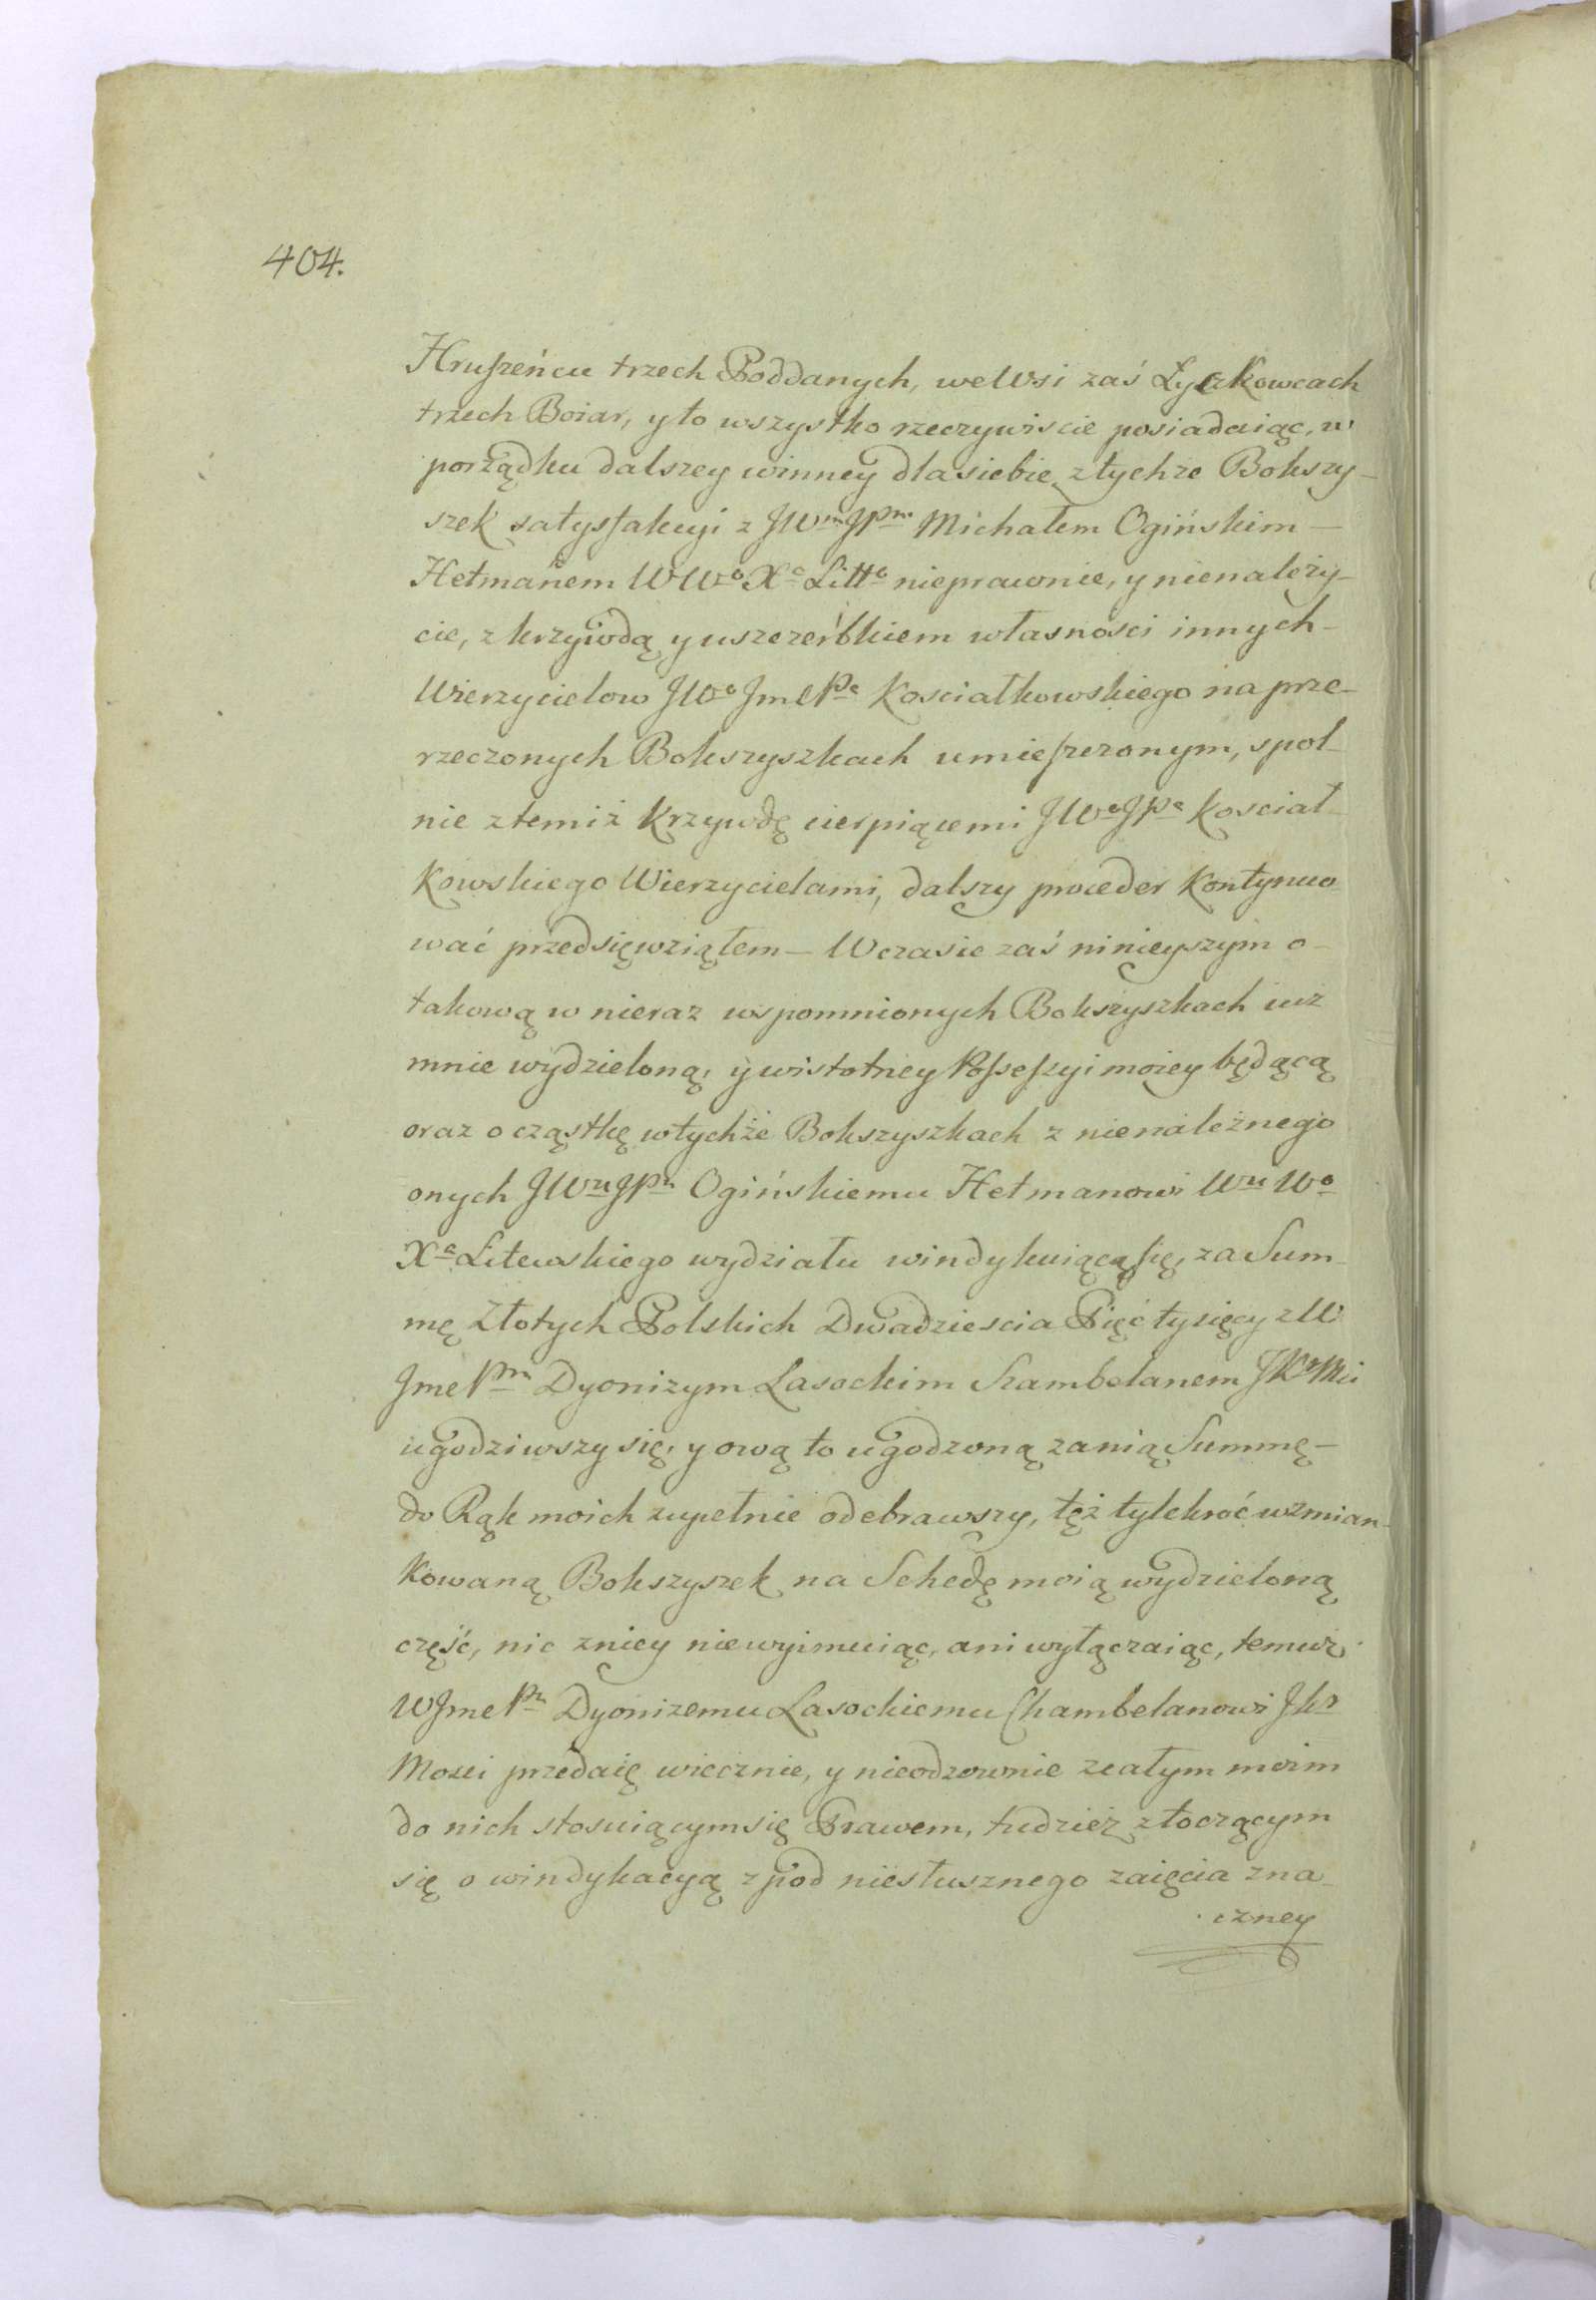 404.
Hruſzeńcu trzech Poddanych, we Wsi zaś Łyczkowcach
trzech Boiar, y to wszystko rzeczywiscie posiadaiąc, w
porządku dalszey winney dla siebie z tychże Bokszy-
szek satysfakcyi z JWm JPm Michałem Ogińskim —
Hetmanem W Wo Xa Litto nieprawnie, y nienależy-
cie, z krzywdą y uszczerbkiem własności innych —
Wierzycielow JWo Jme Pa Kosciałkowskiego na prze-
rzeczonych Bokszyszkach umieſzczonym, spol-
nie z temiż Krzywdę cierpiącemi JWo JPa Kosciał-
kowskiego Wierzycielami, dalszy proceder Kontynuo-
wać przedsięwziąłem — W czasie zaś ninieyszym o-
takową w nieraz wspomnionych Bokszyszkach iuż
mnie wydzieloną, y w istotney Poſseſsyi moiey będącą
oraz o cząstkę w tychże Bokszyszkach z nienależnego
onych JWu JPu Ogińskiemu Hetmanowi Wu Wo
Xa Litewskiego wydziału windykuiącą się, za Sum-
mę Złotych Polskich Dwadziescia Pięć tysięcy z W
Jme Pm Dyonizym Lasockim Szambelanem JKr Mci
ugodziwszy się, y ową to ugodzoną za nią Summę —
do Rąk moich zupełnie odebrawszy, tęż tylekroć wzmian-
kowaną Bokszyszek na Schedę moią wydzieloną
część, nic z niey nie wyimuiąc, ani wyłączaiąc, temuż
W Jme Pu Dyonizemu Lasockiemu Chambelanowi JKr
Mosci przedaię wiecznie, y nieodzownie z całym moim
do nich stosuiącym się Prawem, tudzież z toczącym
się o windykacyą z pod niesłusznego zaięcia zna-
czney